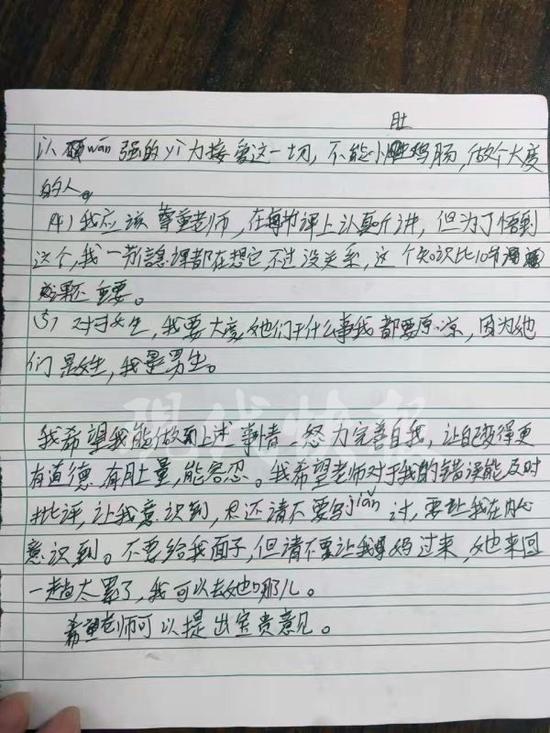 肚
以 wán 强的 yì 力接受这一切，不能小 鸡肠，做个大度
的人。
(4) 我应该 尊重老师，在每节课上认真听讲，但为了悟到
这个，我一节 课都在想它，不过没关系，这个知识比10节
还 重要。
(5) 对于女生，我要大度，她们干什么事我都要原凉，因为她
们是女生，我是男生。
现代快报
我希望我能做到上述事情，努力完善自我，让自己变得更
有道德 有肚量，能容忍。我希望老师对于我的错误能及时
批评，让我意识到，但还请不要写jiǎn 讨，要让我在内心
意识到。不要给我面子，但请不要让我 妈过来，她来回
一趟太累了，我可以去她哪儿。
希望老师可以提出宝贵意见。